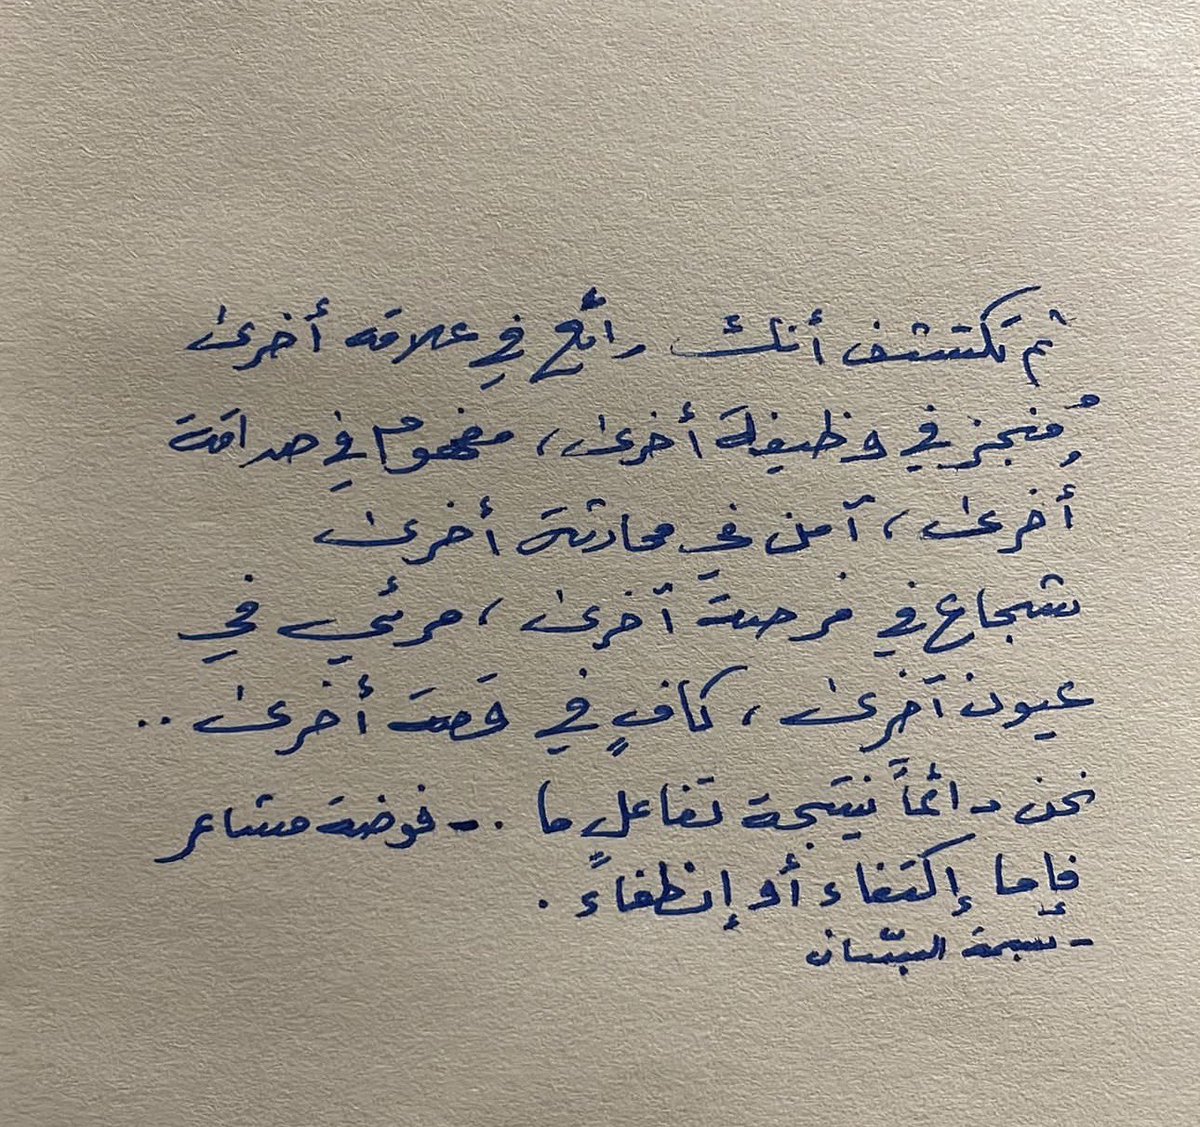 ثم تكتشف أنك رائع في علاقه أخرى
مُنجز في وظيفة أخرى، مفهوم في صداقة
أُخرى، آمن في محادثة أخرى
شجاع في فرصة آخرى، مرئي في
عيون آخرى، كافٍ في قصة أخرى ..
نحن دائماً نتيجة تفاعلٍ ما .. فوضة مشاعر
فإما إكتفاء أو إنطفاءً .
- نسمة السان